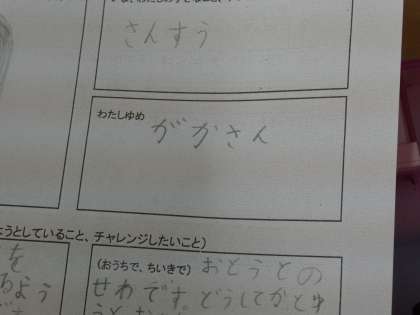 さんすう
わたしゆめ
がかさん
ようとしていること、チャレンジしたいこと)
を
るよう
(おうちで、ちいきで) おとうとの
せわです。どうしてかとゆ